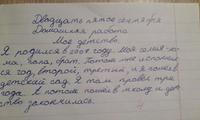 Двадцать пятое сентября
Домашняя работа
Мое детство.
Я родился в 2008 году. Моя семья -
ма, папа, брат. Потом мне исполнился
ся год, второй, третий, и я пошёл в
детский сад. Я там провёл три
года. А потом пошёл в школу и дет
ство закончилась.